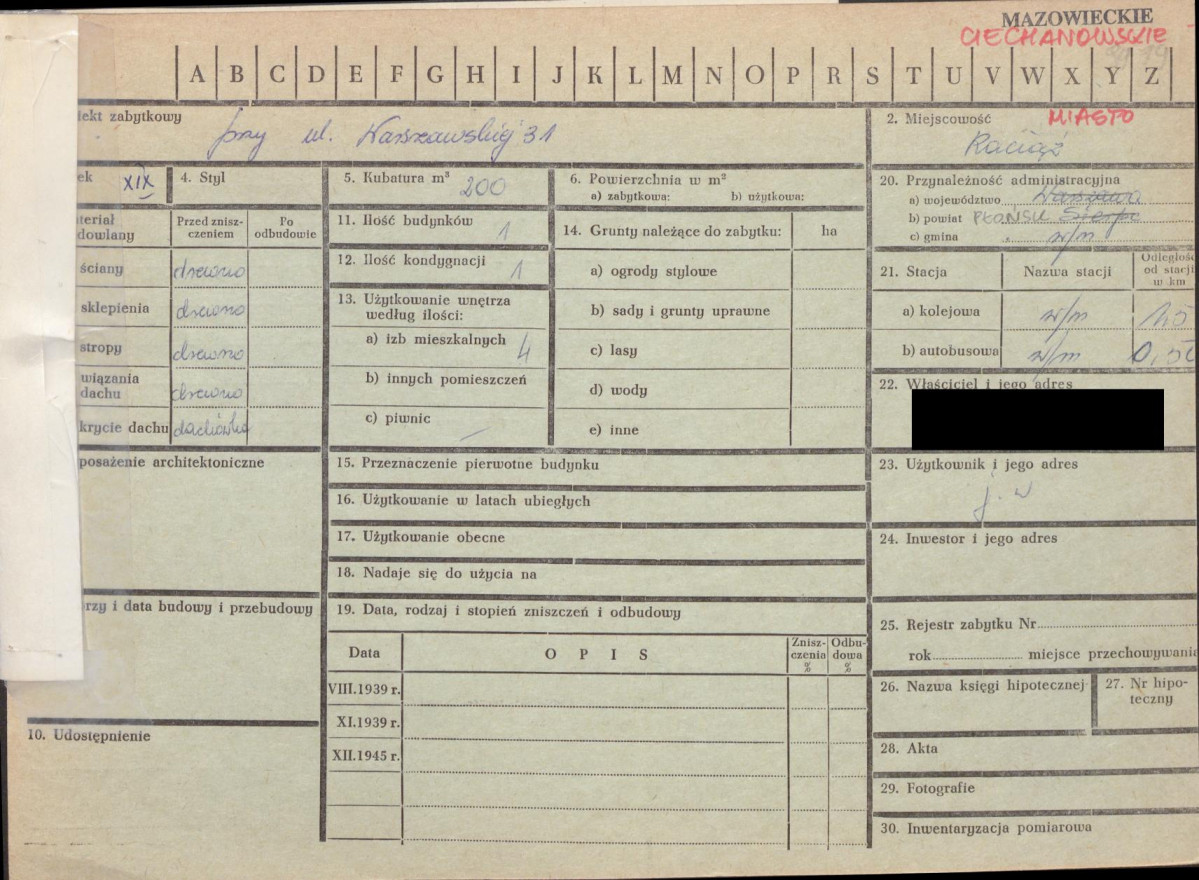 MAZOWIECKIE
CIECHANOWSKIE
A B C D E F G H I J K L M N O P R S T U V W X Y Z
iekt zabytkowy
przy ul. Warszawskiej 31
2. Miejscowość MIASTO
Raciąż
ek XIX
4. Styl
5. Kubatura m³ 200
6. Powierzchnia w m²
a) zabytkowa: b) użytkowa:
20. Przynależność administracyjna
a) województwo Warszawa
b) powiat PŁOŃSK Sierpc
c) gmina w/m
teriał
dowlany
Przed znisz-
czeniem
Po
odbudowie
ściany drewno
sklepienia drewno
stropy drewno
wiązania
dachu drewno
krycie dachu dachówka
11. Ilość budynków 1
12. Ilość kondygnacji 1
13. Użytkowanie wnętrza
według ilości:
a) izb mieszkalnych 4
b) innych pomieszczeń
c) piwnic —
14. Grunty należące do zabytku: ha
a) ogrody stylowe
b) sady i grunty uprawne
c) lasy
d) wody
e) inne
21. Stacja
Nazwa stacji
Odległość
od stacji
w km
a) kolejowa w/m 1,5
b) autobusowa w/m 0,50
22. Właściciel i jego adres
posażenie architektoniczne
15. Przeznaczenie pierwotne budynku
16. Użytkowanie w latach ubiegłych
17. Użytkowanie obecne
18. Nadaje się do użycia na
23. Użytkownik i jego adres
j. w
24. Inwestor i jego adres
rzy i data budowy i przebudowy
19. Data, rodzaj i stopień zniszczeń i odbudowy
Data
O P I S
Znisz-
czenia
%
Odbu-
dowa
%
VIII.1939 r.
XI.1939 r.
XII.1945 r.
25. Rejestr zabytku Nr
rok miejsce przechowywania
26. Nazwa księgi hipotecznej
27. Nr hipo-
teczny
10. Udostępnienie
28. Akta
29. Fotografie
30. Inwentaryzacja pomiarowa